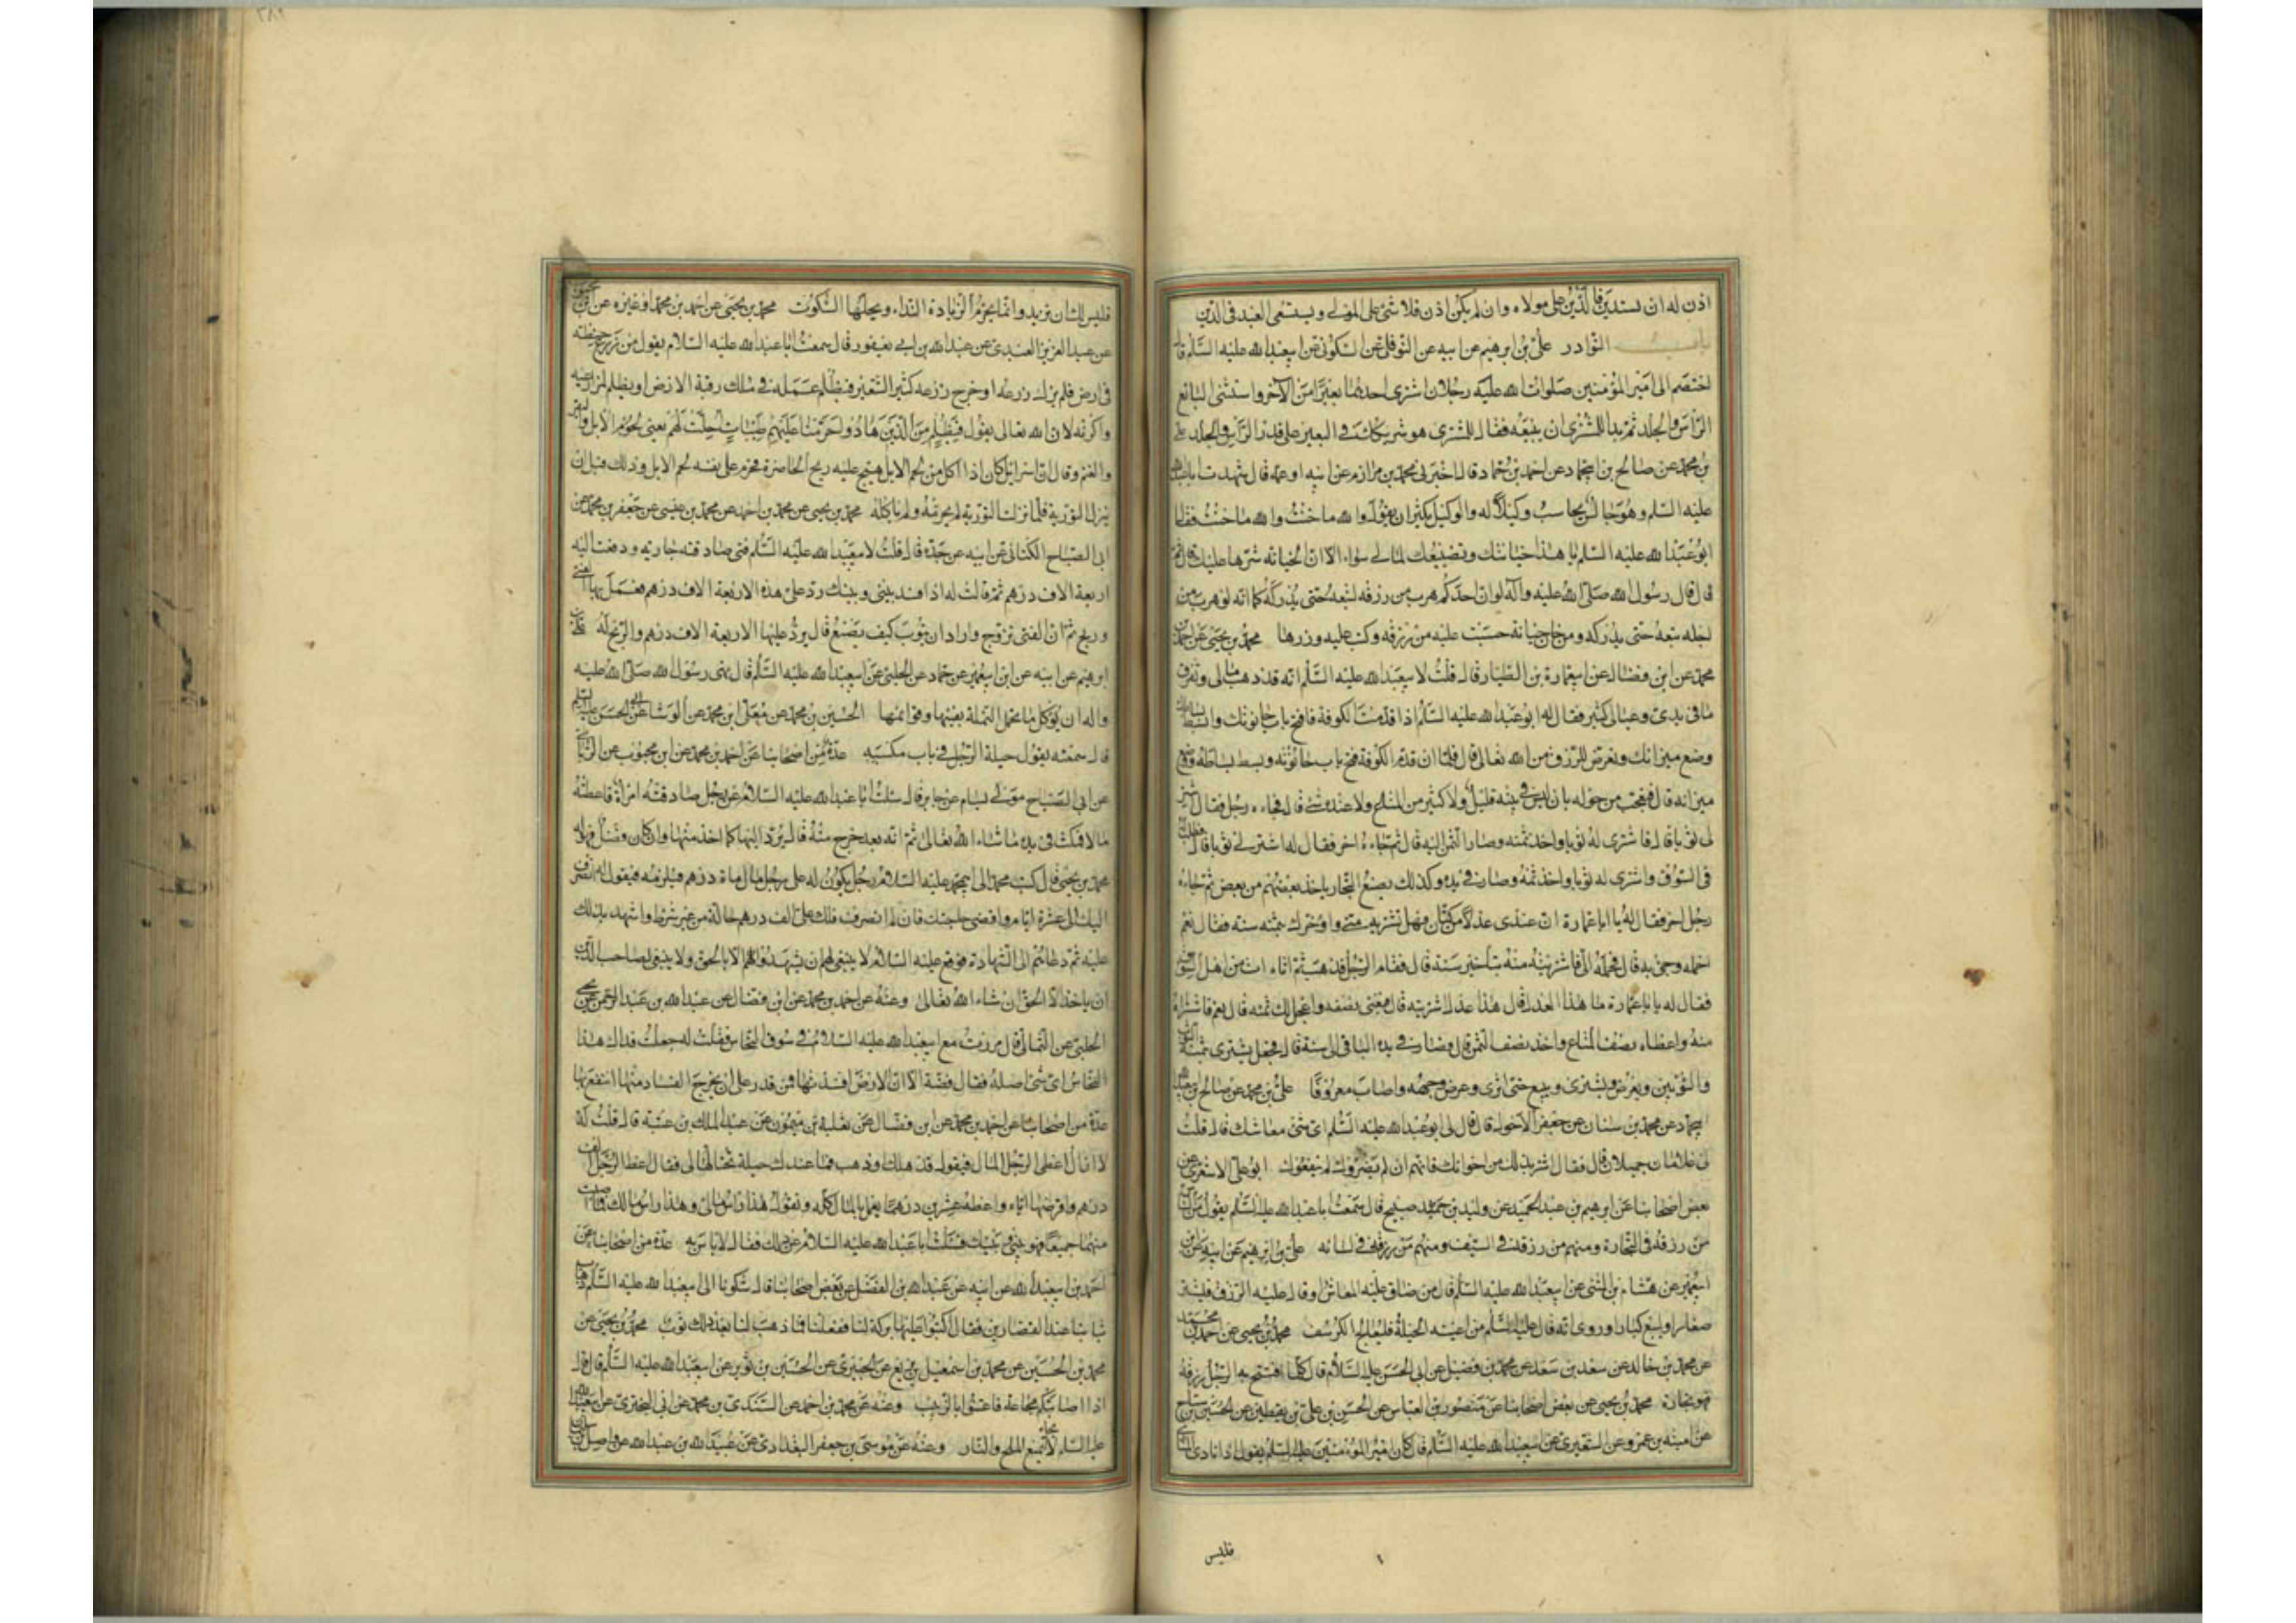 اذن له ان يستدين فالدين على مولاه وان لم يكن اذن فلا شئ على المولى ويستسعى العبد فى الدين
باب النوادر على بن ابرهيم عن ابيه عن النوفلى عن السكونى عن ابيعبدالله عليه السلم قال
اختصم الى امير المؤمنين صلوات الله عليه رجلان اشترى احدهما بعيرا من الآخر واستثنى البائع
الرأس والجلد ثم بدا للمشترى ان يبيعه فقال للمشترى هو شريكك فى البعير على قدر الرأس والجلد على
بن محمد عن صالح بن ابيحماد عن احمد بن حماد قال اخبرنى محمد بن مرازم عن ابيه او عمه قال شهدت اباعبدالله
عليه السلم وهو يحاسب وكيلا له والوكيل يكثر ان يقول والله ما خنت والله ما خنت فقال له
ابوعبدالله عليه السلم يا هذا خيانتك وتضييعك لمالى سواء الا ان الخيانة شرها عليك ثم
قال قال رسول الله صلى الله عليه وآله لو ان احدكم هرب من رزقه لتبعه حتى يدركه كما انه لو هرب من
اجله تبعه حتى يدركه ومن خان خيانة حسبت عليه من رزقه وكتب عليه وزرها محمد بن يحيى عن احمد بن
محمد عن ابن فضال عن ابيعمارة بن الطيار قال قلت لابيعبدالله عليه السلم انه قد ذهب مالى وتفرق
ما فى يدى وعيالى كثير فقال له ابوعبدالله عليه السلم اذا قدمت الكوفة فافتح باب حانوتك وابسط بساطك
وضع ميزانك وتعرض للرزق من الله تعالى قال فلما ان قدم الكوفة فتح باب حانوته وبسط بساطه ووضع
ميزانه قال فتعجب من حوله بان ليس فى بيته قليل ولا كثير من المتاع ولا عنده شئ قال فجاءه رجل فقال اشتر
لى ثوبا قال فاشترى له ثوبا واخذ ثمنه وصار الثمن اليه قال ثم جاءه اخر فقال له اشتر لى ثوبا قال فطلب له
فى السوق واشترى له ثوبا واخذ ثمنه وصار فى يده وكذلك يصنع التجار ياخذ بعضهم من بعض ثم جاءه
رجل اخر فقال له يا اباعمارة ان عندى عدلا من كتان فهل تشتريه منى واؤخرك بثمنه سنة فقال نعم
احمله وجئ به قال فحمله الى فاشتريته منه بتأخير سنة قال فقام الرجل فذهب ثم اتاه ات من اهل السوق
فقال له يا اباعمارة ما هذا العدل قال هذا عدل اشتريته قال فبعنى نصفه واعجل لك ثمنه قال نعم فاشتراه
منه واعطاه نصف المتاع واخذ نصف الثمن قال وصار فى يده الباقى الى سنة قال فجعل يشترى بثمنه الثوب
والثوبين ويعرض ويشترى ويبيع حتى اثرى وعرض وجهه واصاب معروفا على بن محمد عن صالح بن
ابيحماد عن محمد بن سنان عن ابيجعفر الاحول قال قال لى ابوعبدالله عليه السلم اى شئ معاشك قال قلت
لى غلامان جميلان قال فقال استر ذلك من اخوانك فانهم ان لم يضروك لم ينفعوك ابوعلى الاشعرى عن
بعض اصحابنا عن ابرهيم بن عبدالحميد عن وليد بن صبيح قال سمعت اباعبدالله عليه السلم يقول من الناس
من رزقه فى التجارة ومنهم من رزقه فى السيف ومنهم من رزقه فى لسانه على بن ابرهيم عن ابيه عن ابن
ابيعمير عن هشام بن المثنى عن ابيعبدالله عليه السلم قال من ضاق عليه المعاش او قال عليه الرزق فليشتر
صغارا وليبع كبارا وروى انه قال عليه السلم من اعيته الحيلة فليعالج الكرسف محمد بن يحيى عن احمد بن محمد
عن محمد بن خالد عن سعد بن سعد عن محمد بن فضيل عن ابى الحسن عليه السلام قال كلما افتتح به الرجل رزقه
فهو تجارة محمد بن يحيى عن بعض اصحابنا عن منصور بن العباس عن الحسن بن على بن يقطين عن الحسين بن مياح
عن امية بن عمرو عن الشعيرى عن ابيعبدالله عليه السلم قال كان امير المؤمنين عليه السلم يقول اذا نادى المنادى
فليس
فليس لك ان تزيد وانما يحرم الزيادة النداء ويحلها السكوت محمد بن يحيى عن احمد بن محمد او غيره عن ابن محبوب
عن عبد العزيز العبدى عن عبدالله بن ابى يعفور قال سمعت اباعبدالله عليه السلام يقول من زرع حنطة
فى ارض فلم يزك زرعه او خرج زرعه كثير الشعير فبظلم عمله فى ملك رقبة الارض او بظلم لمزارعيه
واكرته لان الله تعالى يقول فبظلم من الذين هادوا حرمنا عليهم طيبات احلت لهم يعنى لحوم الابل والبقر
والغنم وقال ان اسرائيل كان اذا اكل من لحم الابل هيج عليه ريح الخاصرة فحرم على نفسه لحم الابل وذلك قبل ان
ينزل التورية فلما نزلت التورية لم يحرمه ولم ياكله محمد بن يحيى عن محمد بن احمد عن محمد بن عيسى عن جعفر بن محمد عن
ابى الصباح الكنانى عن ابيه عن جده قال قلت لابيعبدالله عليه السلم فتى صادقته جارية ودفعت اليه
اربعة الاف درهم ثم قالت له اذا فسد بينى وبينك رد على هذه الاربعة الاف درهم فعمل بها الفتى
وربح ثم ان الفتى تزوج واراد ان يتوب كيف يصنع قال يرد عليها الاربعة الاف درهم والربح له على بن
ابرهيم عن ابيه عن ابن ابيعمير عن حماد عن الحلبى عن ابيعبدالله عليه السلم قال نهى رسول الله صلى الله عليه
واله ان يؤكل ما تحمل النملة بفيها وقوائمها الحسين بن محمد عن معلى ابن محمد عن الوشا عن ابى الحسن عليه السلم
قال سمعته يقول حيلة الرجل فى باب مكسبه عدة من اصحابنا عن احمد بن محمد عن ابن محبوب عن
عن ابى الصباح مولى بسام عن جابر قال سئلت اباعبدالله عليه السلام عن رجل صادقته امراة فاعطته
مالا فمكث فى يده ما شاء الله تعالى ثم انه بعد خرج منه قال يرد اليها كما اخذ منها وان كان فضل فهو له
محمد بن يحيى قال كتب محمد الى ابيمحمد عليه السلام رجل يكون له على رجل مال ماة درهم فيلزمه فيقول له انصرف
اليك الى عشرة ايام واقضى حاجتك فان لم انصرف فلك على الف درهم حالة من غير شرط واشهد بذلك
عليه ثم دعاهم الى الشهادة فوقع عليه السلام لا ينبغى لهم ان يشهدوا الا بالحق ولا ينبغى لصاحب الدين
ان ياخذ الا الحق ان شاء الله تعالى وعنه عن احمد بن محمد عن ابن فضال عن عبدالله بن عبد الرحمن عن يحيى
الحلبى عن الثمالى قال مررت مع ابيعبدالله عليه السلام فى سوق النحاس فقلت له جعلت فداك هذا
النحاس اى شئ اصله فقال فضة الا ان الارض افسدتها فمن قدر على ان يخرج الفساد منها انتفع بها
عدة من اصحابنا عن احمد بن محمد عن ابن فضال عن ثعلبة بن ميمون عن عبد الملك بن عتبة قال قلت له
لا ازال اعطى الرجل المال فيقول قد هلك او ذهب فما عندك حيلة تحتالها لى فقال اعط الرجل الف
درهم واقرضها اياه واعطه عشرين درهما يعمل بالمال كله وتقول هذا راس مالى وهذا راس مالك فما اصبت
منهما جميعا فهو بينى وبينك فسئلت اباعبدالله عليه السلام عن ذلك فقال لا باس به عدة من اصحابنا عن
احمد بن ابيعبدالله عن ابيه عن عبدالله بن الفضل عن بعض اصحابنا قال شكونا الى ابيعبدالله عليه السلم ذهاب
ثيابنا عند القصارين فقال اكتبوا عليها بركة لنا ففعلنا فما ذهب لنا بعد ذلك ثوب محمد بن يحيى عن
محمد بن الحسين عن محمد بن اسمعيل بن بزيع عن الخيبرى عن الحسين بن ثوير عن ابيعبدالله عليه السلم قال قال
اذا اصابتكم مجاعة فاعتنوا بالزبيب وعنه عن محمد بن احمد عن السندى بن محمد عن ابى البخترى عن ابيعبدالله
عليه السلم لا يحل منع الملح والنار وعنه عن موسى بن جعفر البغدادى عن عبيدالله بن عبدالله عن واصل بن سليمان